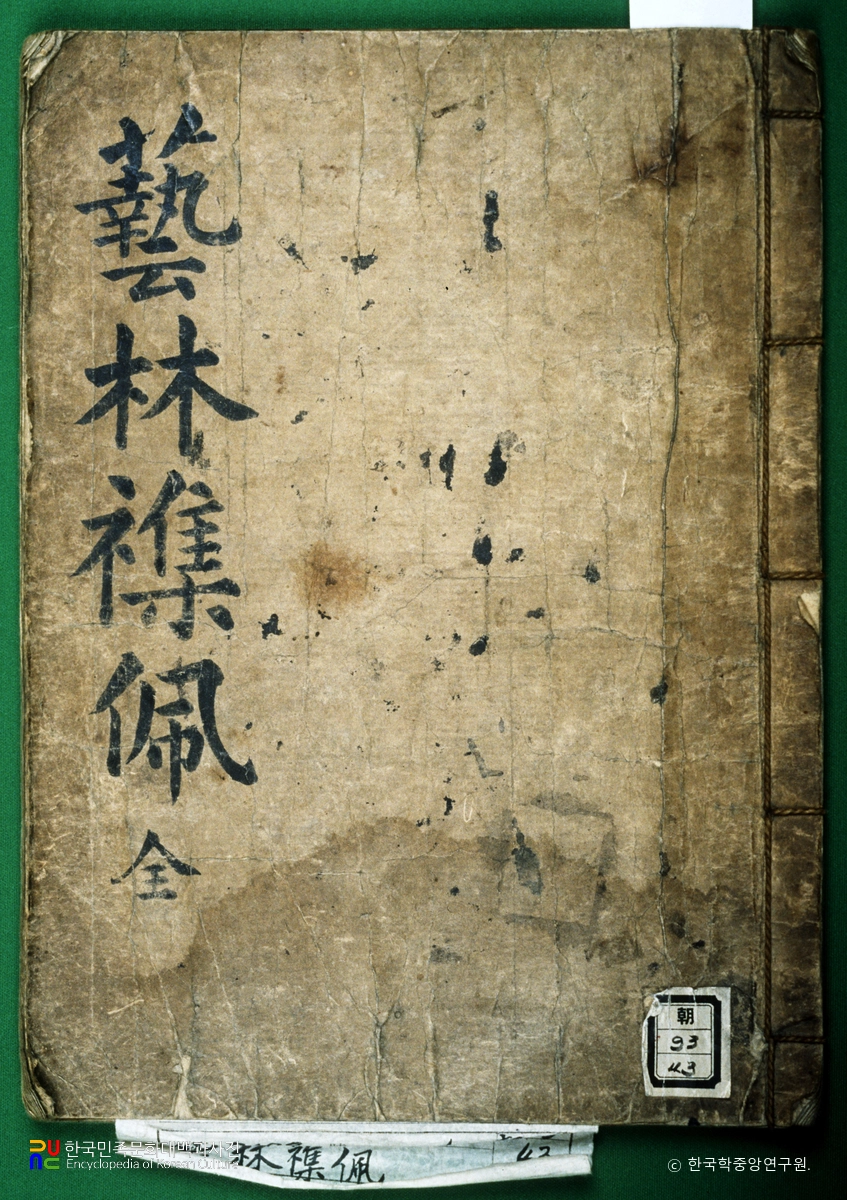 藝林襍佩 全
朝
93
43
林襍佩
한국민족문화대백과사전
Encyclopedia of Korean Culture
© 한국학중앙연구원.